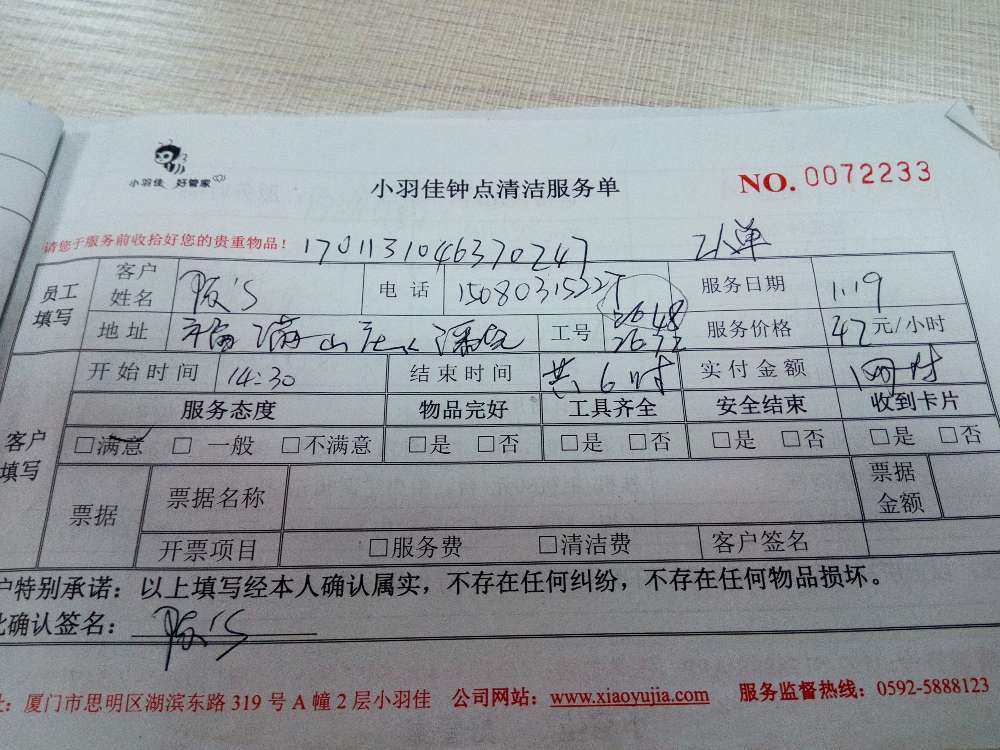 小羽佳 好管家
小羽佳钟点清洁服务单
NO. 0072233
请您于服务前收拾好您的贵重物品！ 1701131046370247
员工填写 客户姓名 电话 服务日期 1.19
地址 工号 2648 2672 服务价格 42元/小时
客户填写 开始时间 14:30 结束时间 共6时 实付金额 网付
服务态度 物品完好 工具齐全 安全结束 收到卡片
□满意 □一般 □不满意 □是 □否 □是 □否 □是 □否 □是 □否
票据 票据名称 票据金额
开票项目 □服务费 □清洁费 客户签名
户特别承诺：以上填写经本人确认属实，不存在任何纠纷，不存在任何物品损坏。
此确认签名：
址：厦门市思明区湖滨东路 319 号 A 幢 2 层小羽佳 公司网站：www.xiaoyujia.com 服务监督热线：0592-5888123